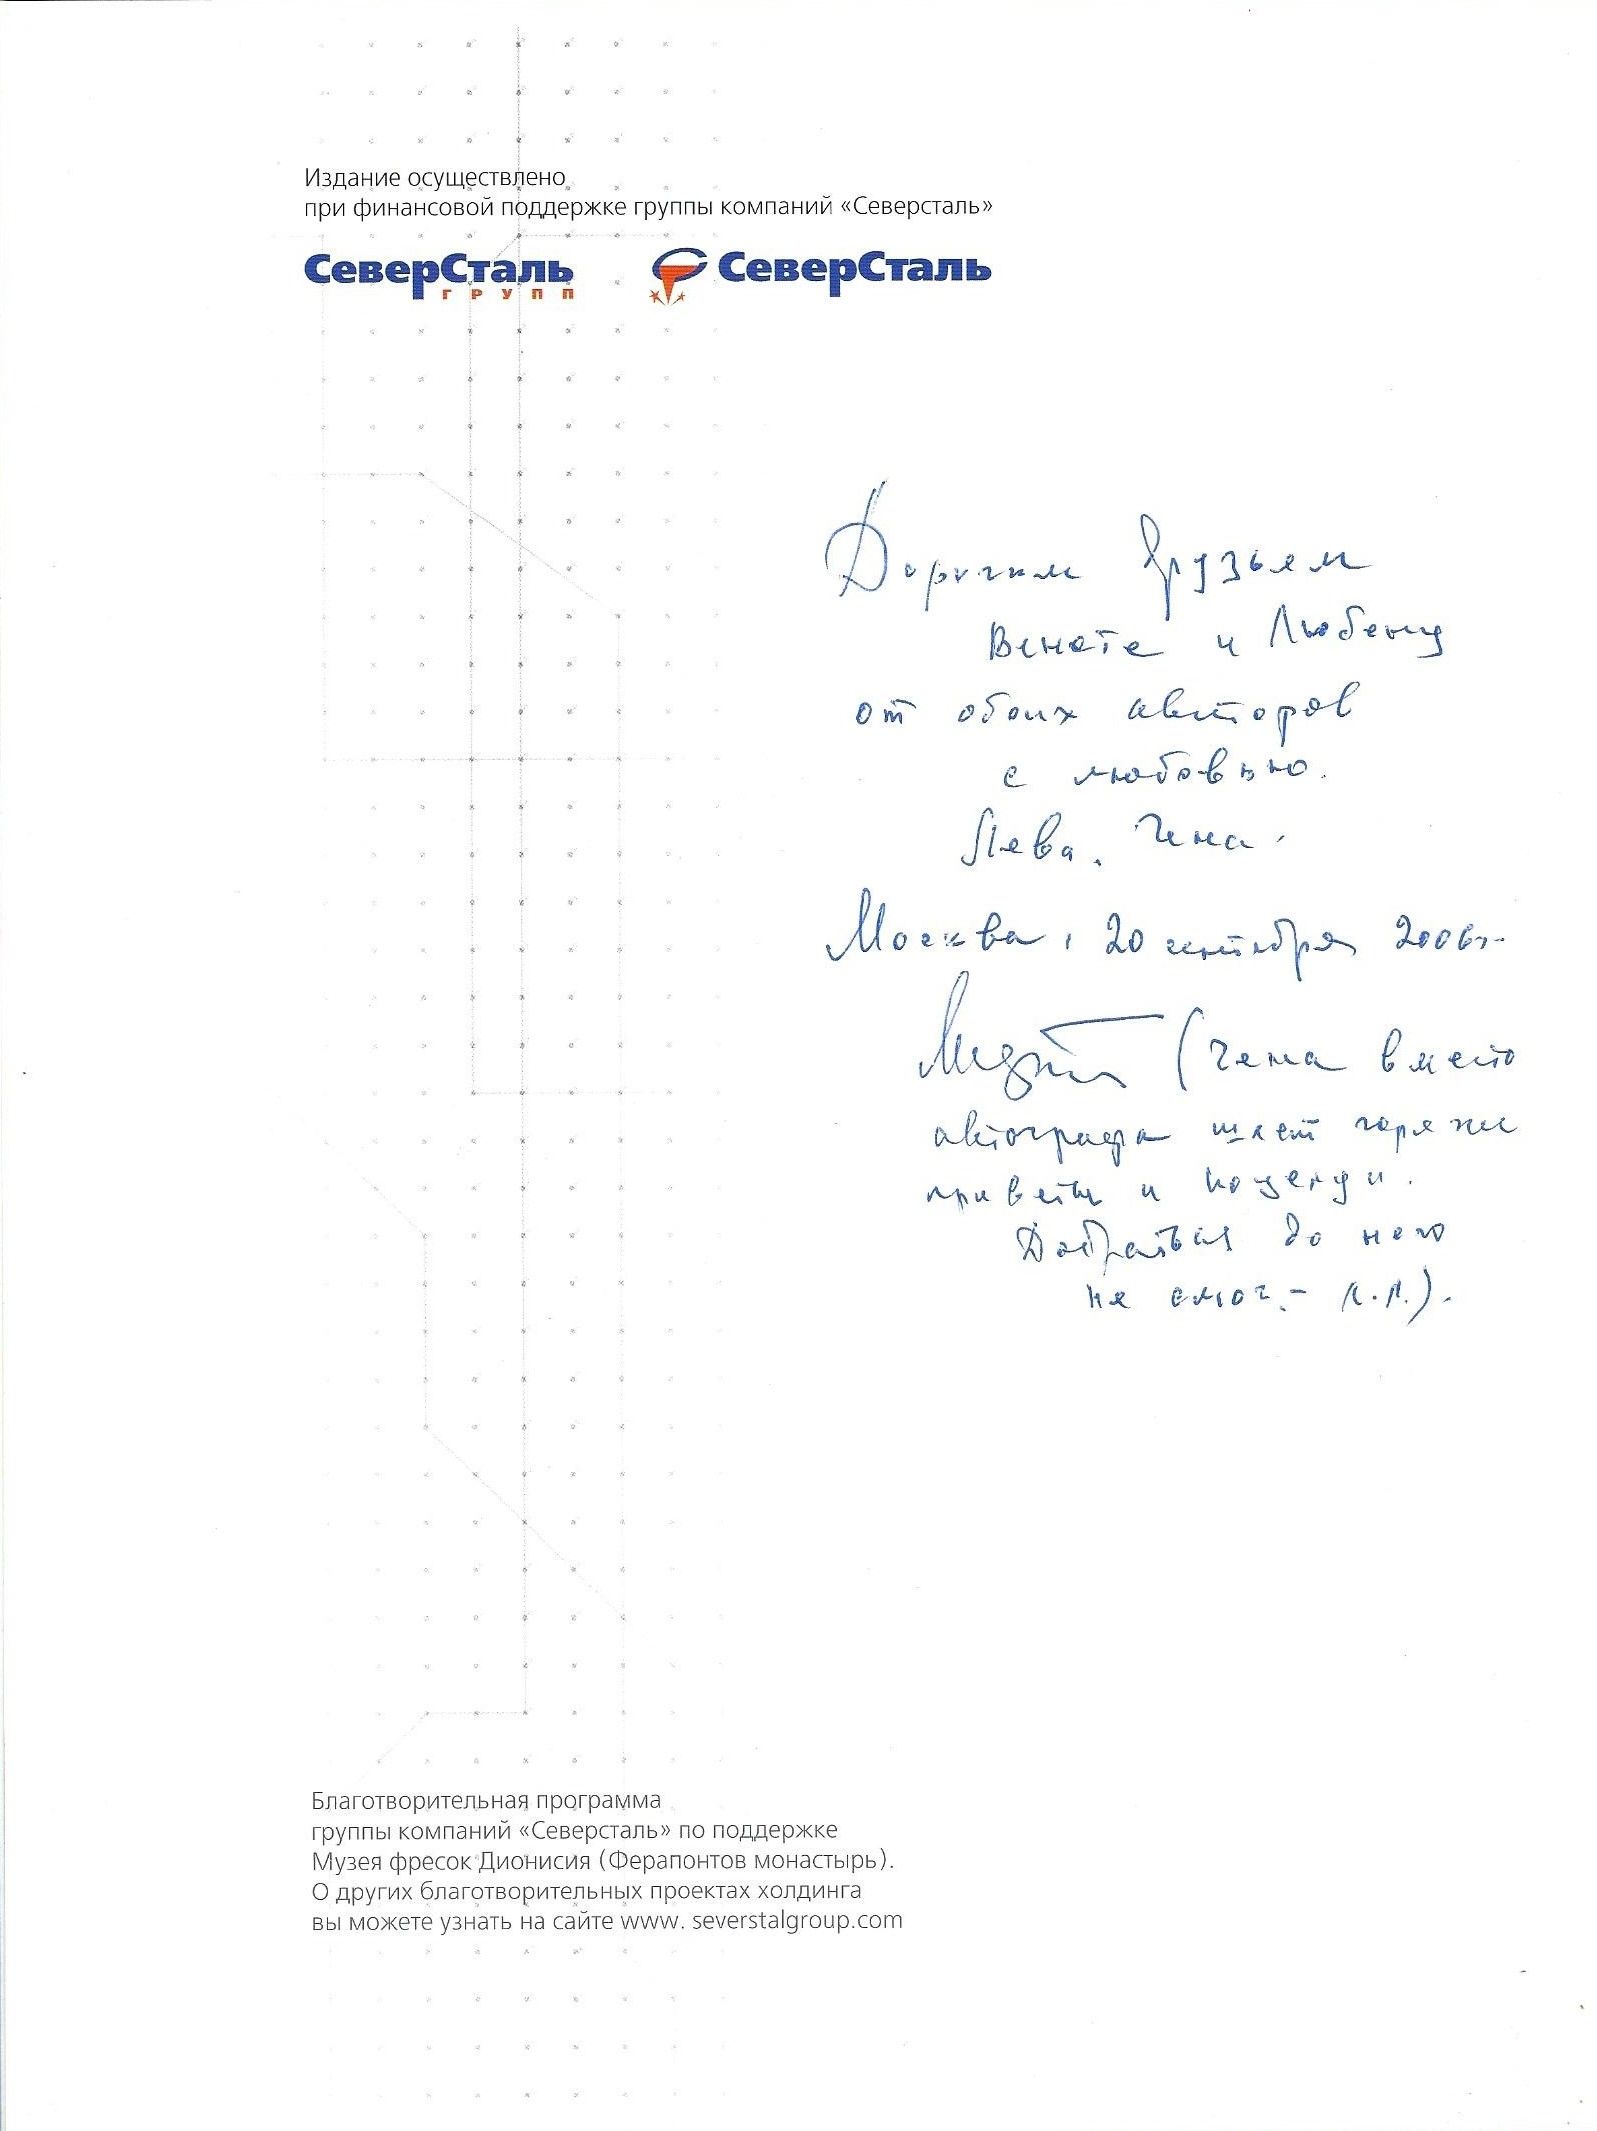 Издание осуществлено
при финансовой поддержке группы компаний «Северсталь»
СеверСталь
ГРУПП
СеверСталь
Дорогим друзьям
Венете и Любену
от обоих авторов
с любовью.
Лева.
Москва, 20 сентября 2006г.
вместо
автографа шлет горячие
приветы и поцелуи.
Добраться до него
не смог. - Л.Л.).
Благотворительная программа
группы компаний «Северсталь» по поддержке
Музея фресок Дионисия (Ферапонтов монастырь).
О других благотворительных проектах холдинга
вы можете узнать на сайте www. severstalgroup.com